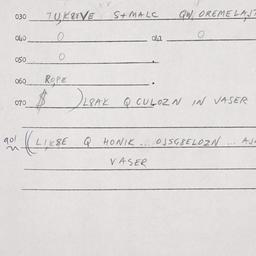 030 TUKSTVE S+MALC QW, OREMELAST
040 0 0
050 0
060 ROPE
070 $ ) LSAK Q CULOZN IN VASER
LIKSE Q HONIK ... OJSGBELOZN ... AS
VASER